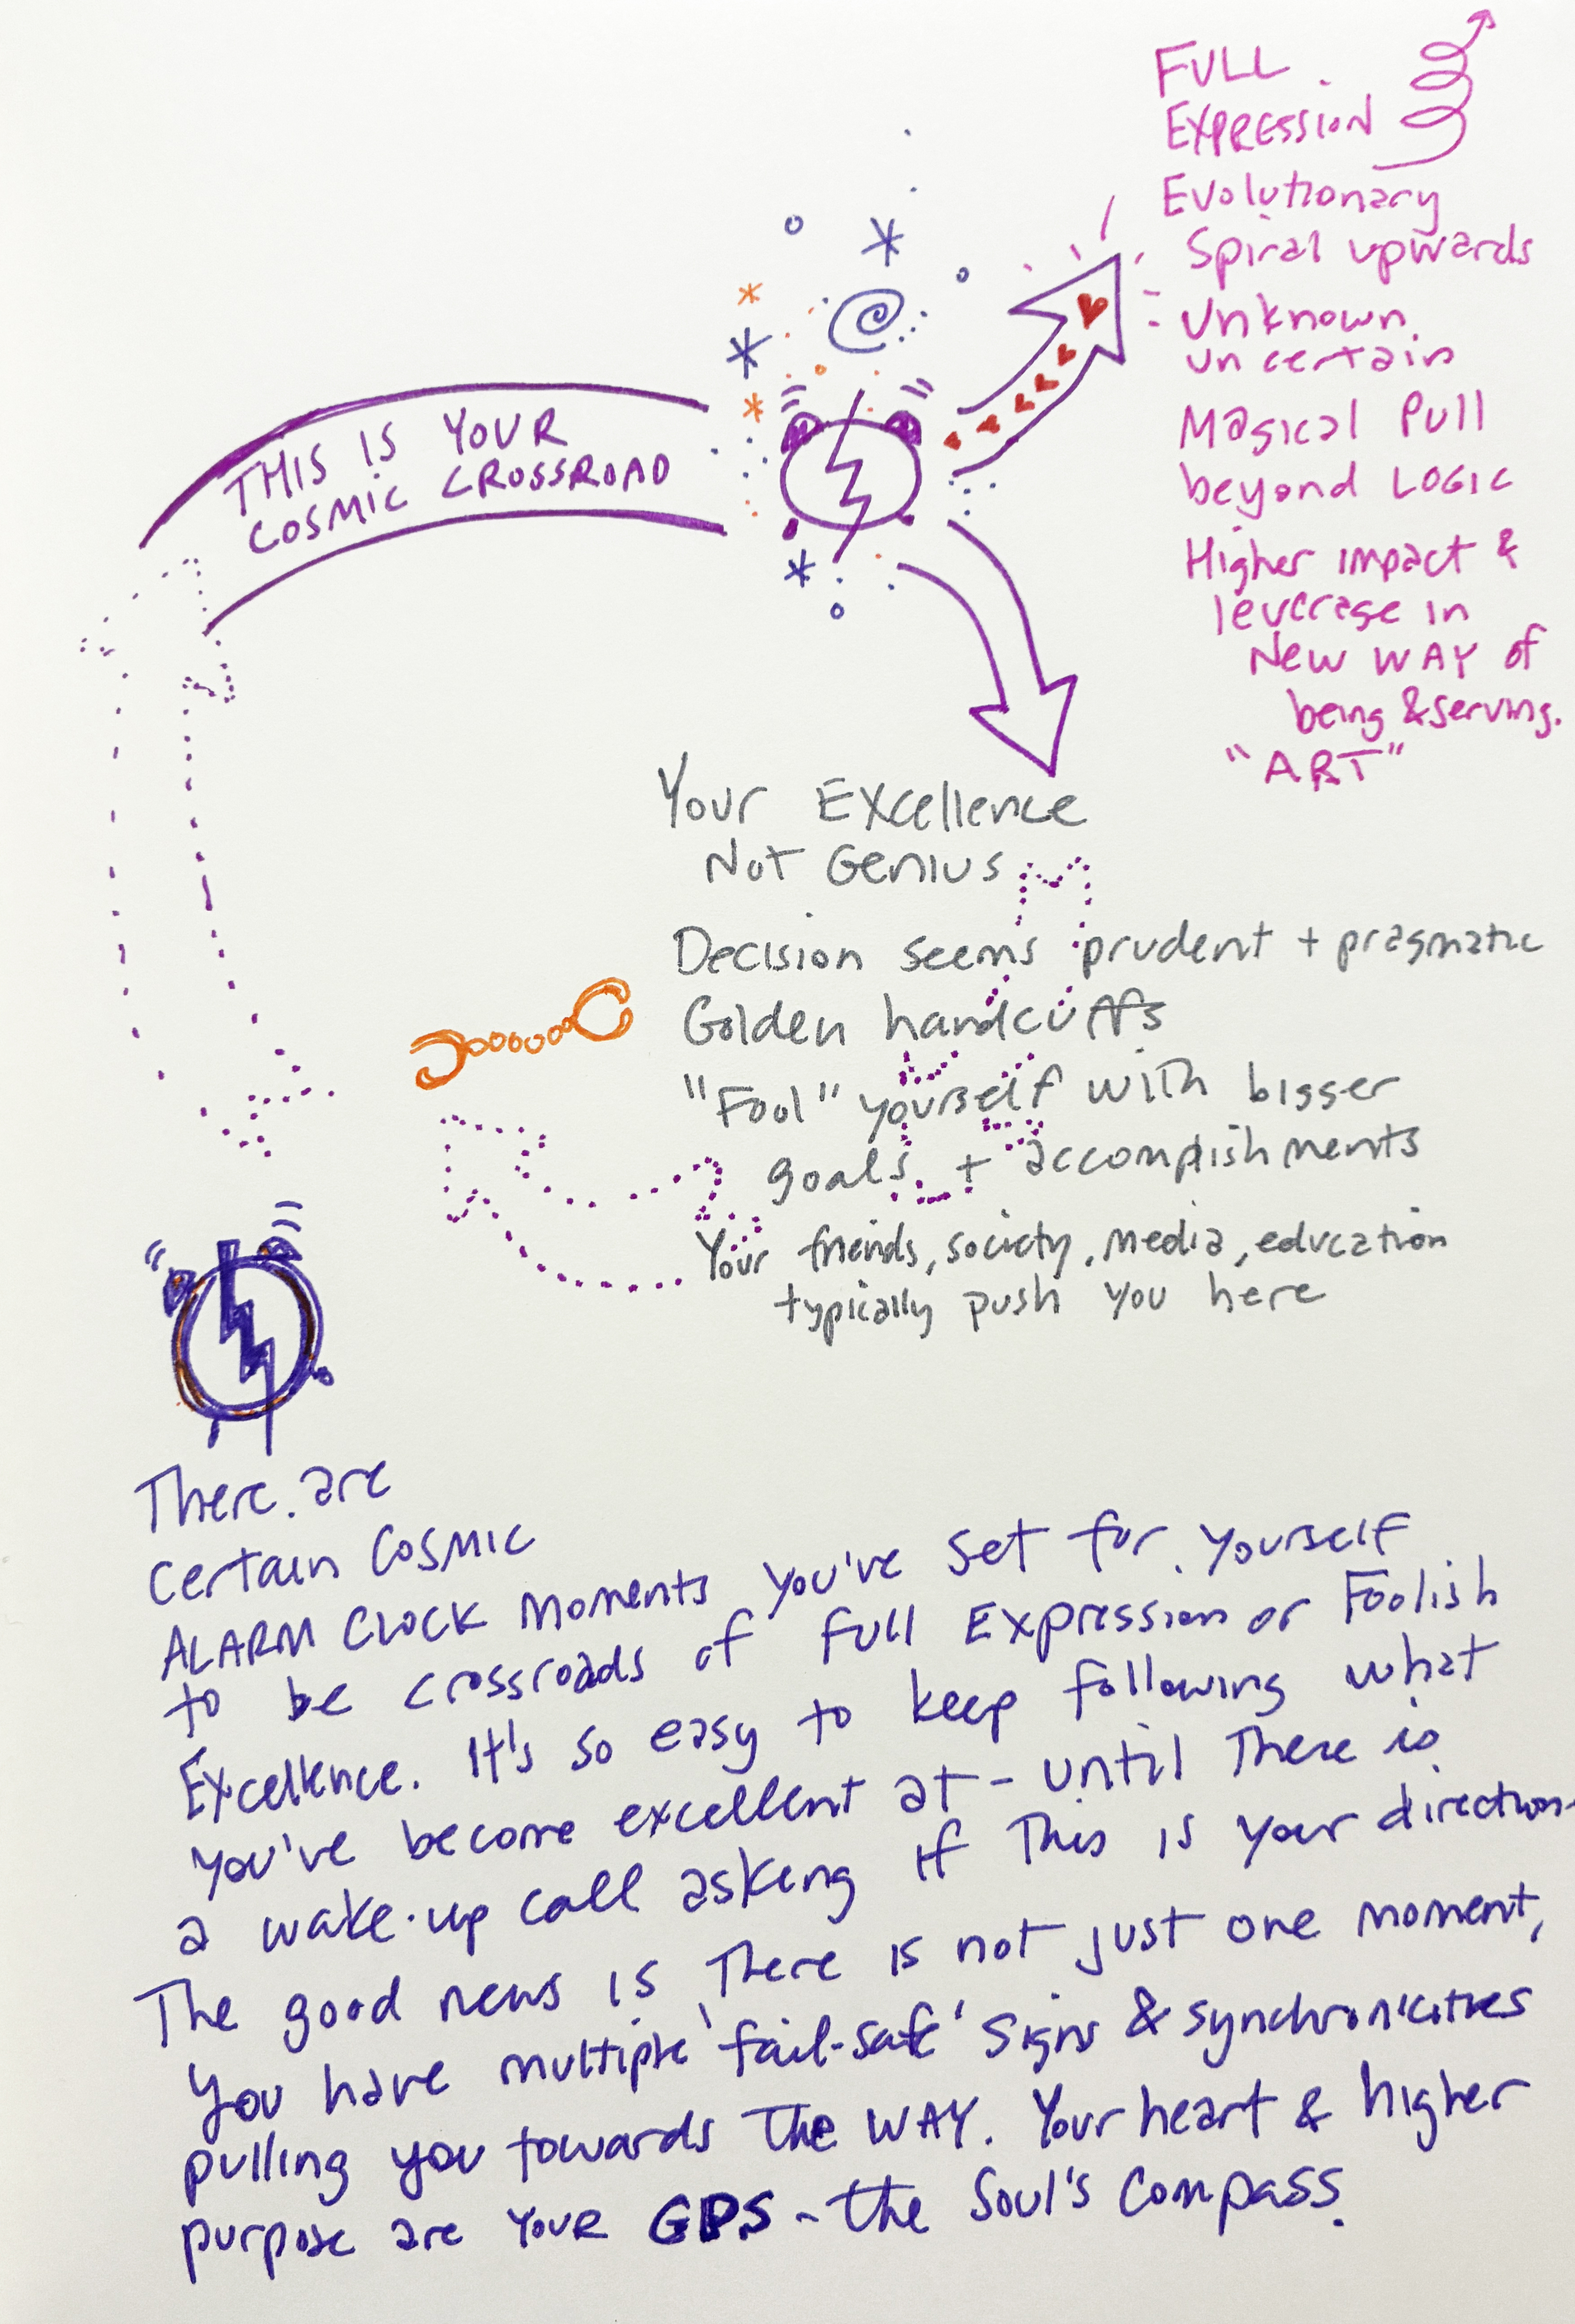 FULL
EXPRESSION
Evolutionary
Spiral upwards
Unknown.
uncertain
Magical Pull
beyond LOGIC
Higher impact &
leverage in
New WAY of
being & serving.
"ART"
THIS IS YOUR
COSMIC CROSSROAD
Your Excellence
Not Genius
Decision seems prudent + pragmatic
Golden handcuffs
"Fool" yourself with bigger
goals + accomplishments
Your friends, society, media, education
typically push you here
There are
Certain Cosmic
ALARM CLOCK Moments you've set for yourself
to be crossroads of full Expression or Foolish
Excellence. It's so easy to keep following what
you've become excellent at - until There is
a wake-up call asking if This is your direction.
The good news is There is not just one moment,
You have multiple 'fail-safe' signs & synchronicities
pulling you towards The WAY. Your heart & higher
purpose are YOUR GPS - the Soul's Compass.